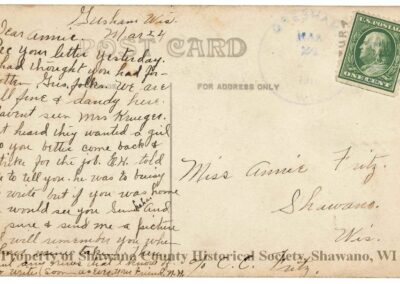 Gresham Wis.
Mar 24
Dear Annie
Rec your letter yesterday.
had thought you had for-
gotten Gres. folks. We are
all fine & dandy here.
Havent seen Mrs Krueger.
but heard they wanted a girl
so you better come back &
strike for the job. E.H. told
me to tell you. he was to busy
to write but if you was home
he would see you Sun. And
be sure & send me a picture
will remember you when
POST CARD
FOR ADDRESS ONLY
GRESHAM
MAR
24
WIS
U.S. POSTAGE
ONE CENT
Miss Annie Fritz.
Shawano.
Wis.
c/o C. C. Fritz.
Property of Shawano County Historical Society, Shawano, WI